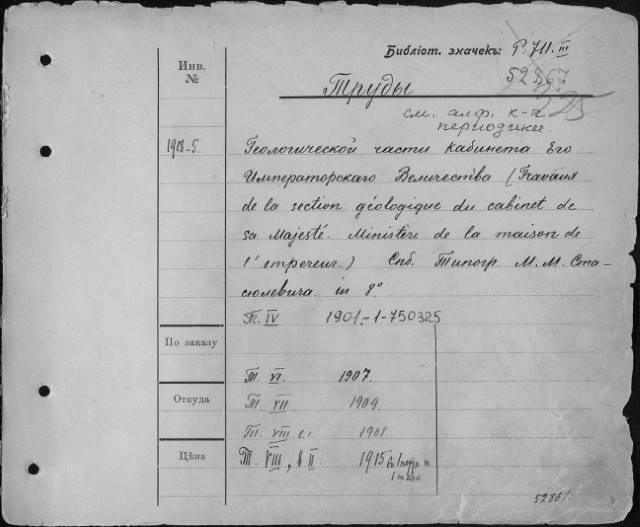 Библіот. значекъ: P. 711. III
Инв. №
52867
Труды
225
см. алф. к-а
периодики.
1918-5.
Геологической части Кабинета Его
Императорскаго Величества (Travaux
de la section géologique du cabinet de
sa Majesté. Ministère de la maison de
l'empereur.) Спб. Типогр. М. М. Ста-
сюлевича. in 8°
Т. IV 1901-1-750325
По заказу
Т. VI. 1907.
Откуда
Т. VII 1909
Т. VIII в. 1 1908
Цѣна
Т. VIII, в II 1915
5286